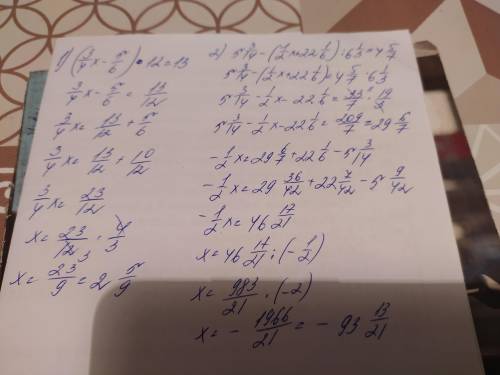 1) (3/4 x - 5/6) • 12 = 13
3/4 x - 5/6 = 13/12
3/4 x = 13/12 + 5/6
3/4 x = 13/12 + 10/12
3/4 x = 23/12
x = 23/12 · 4/3
x = 23/9 = 2 5/9
2) 5 3/14 - (1/2 x + 22 1/6) : 6 1/3 = 4 5/7
5 3/14 - (1/2 x + 22 1/6) = 4 5/7 · 6 1/3
5 3/14 - 1/2 x - 22 1/6 = 33/7 · 19/3
5 3/14 - 1/2 x - 22 1/6 = 209/7 = 29 6/7
- 1/2 x = 29 6/7 + 22 1/6 - 5 3/14
- 1/2 x = 29 36/42 + 22 7/42 - 5 9/42
- 1/2 x = 46 17/21
x = 46 17/21 : (- 1/2)
x = 983/21 · (-2)
x = - 1966/21 = - 93 13/21